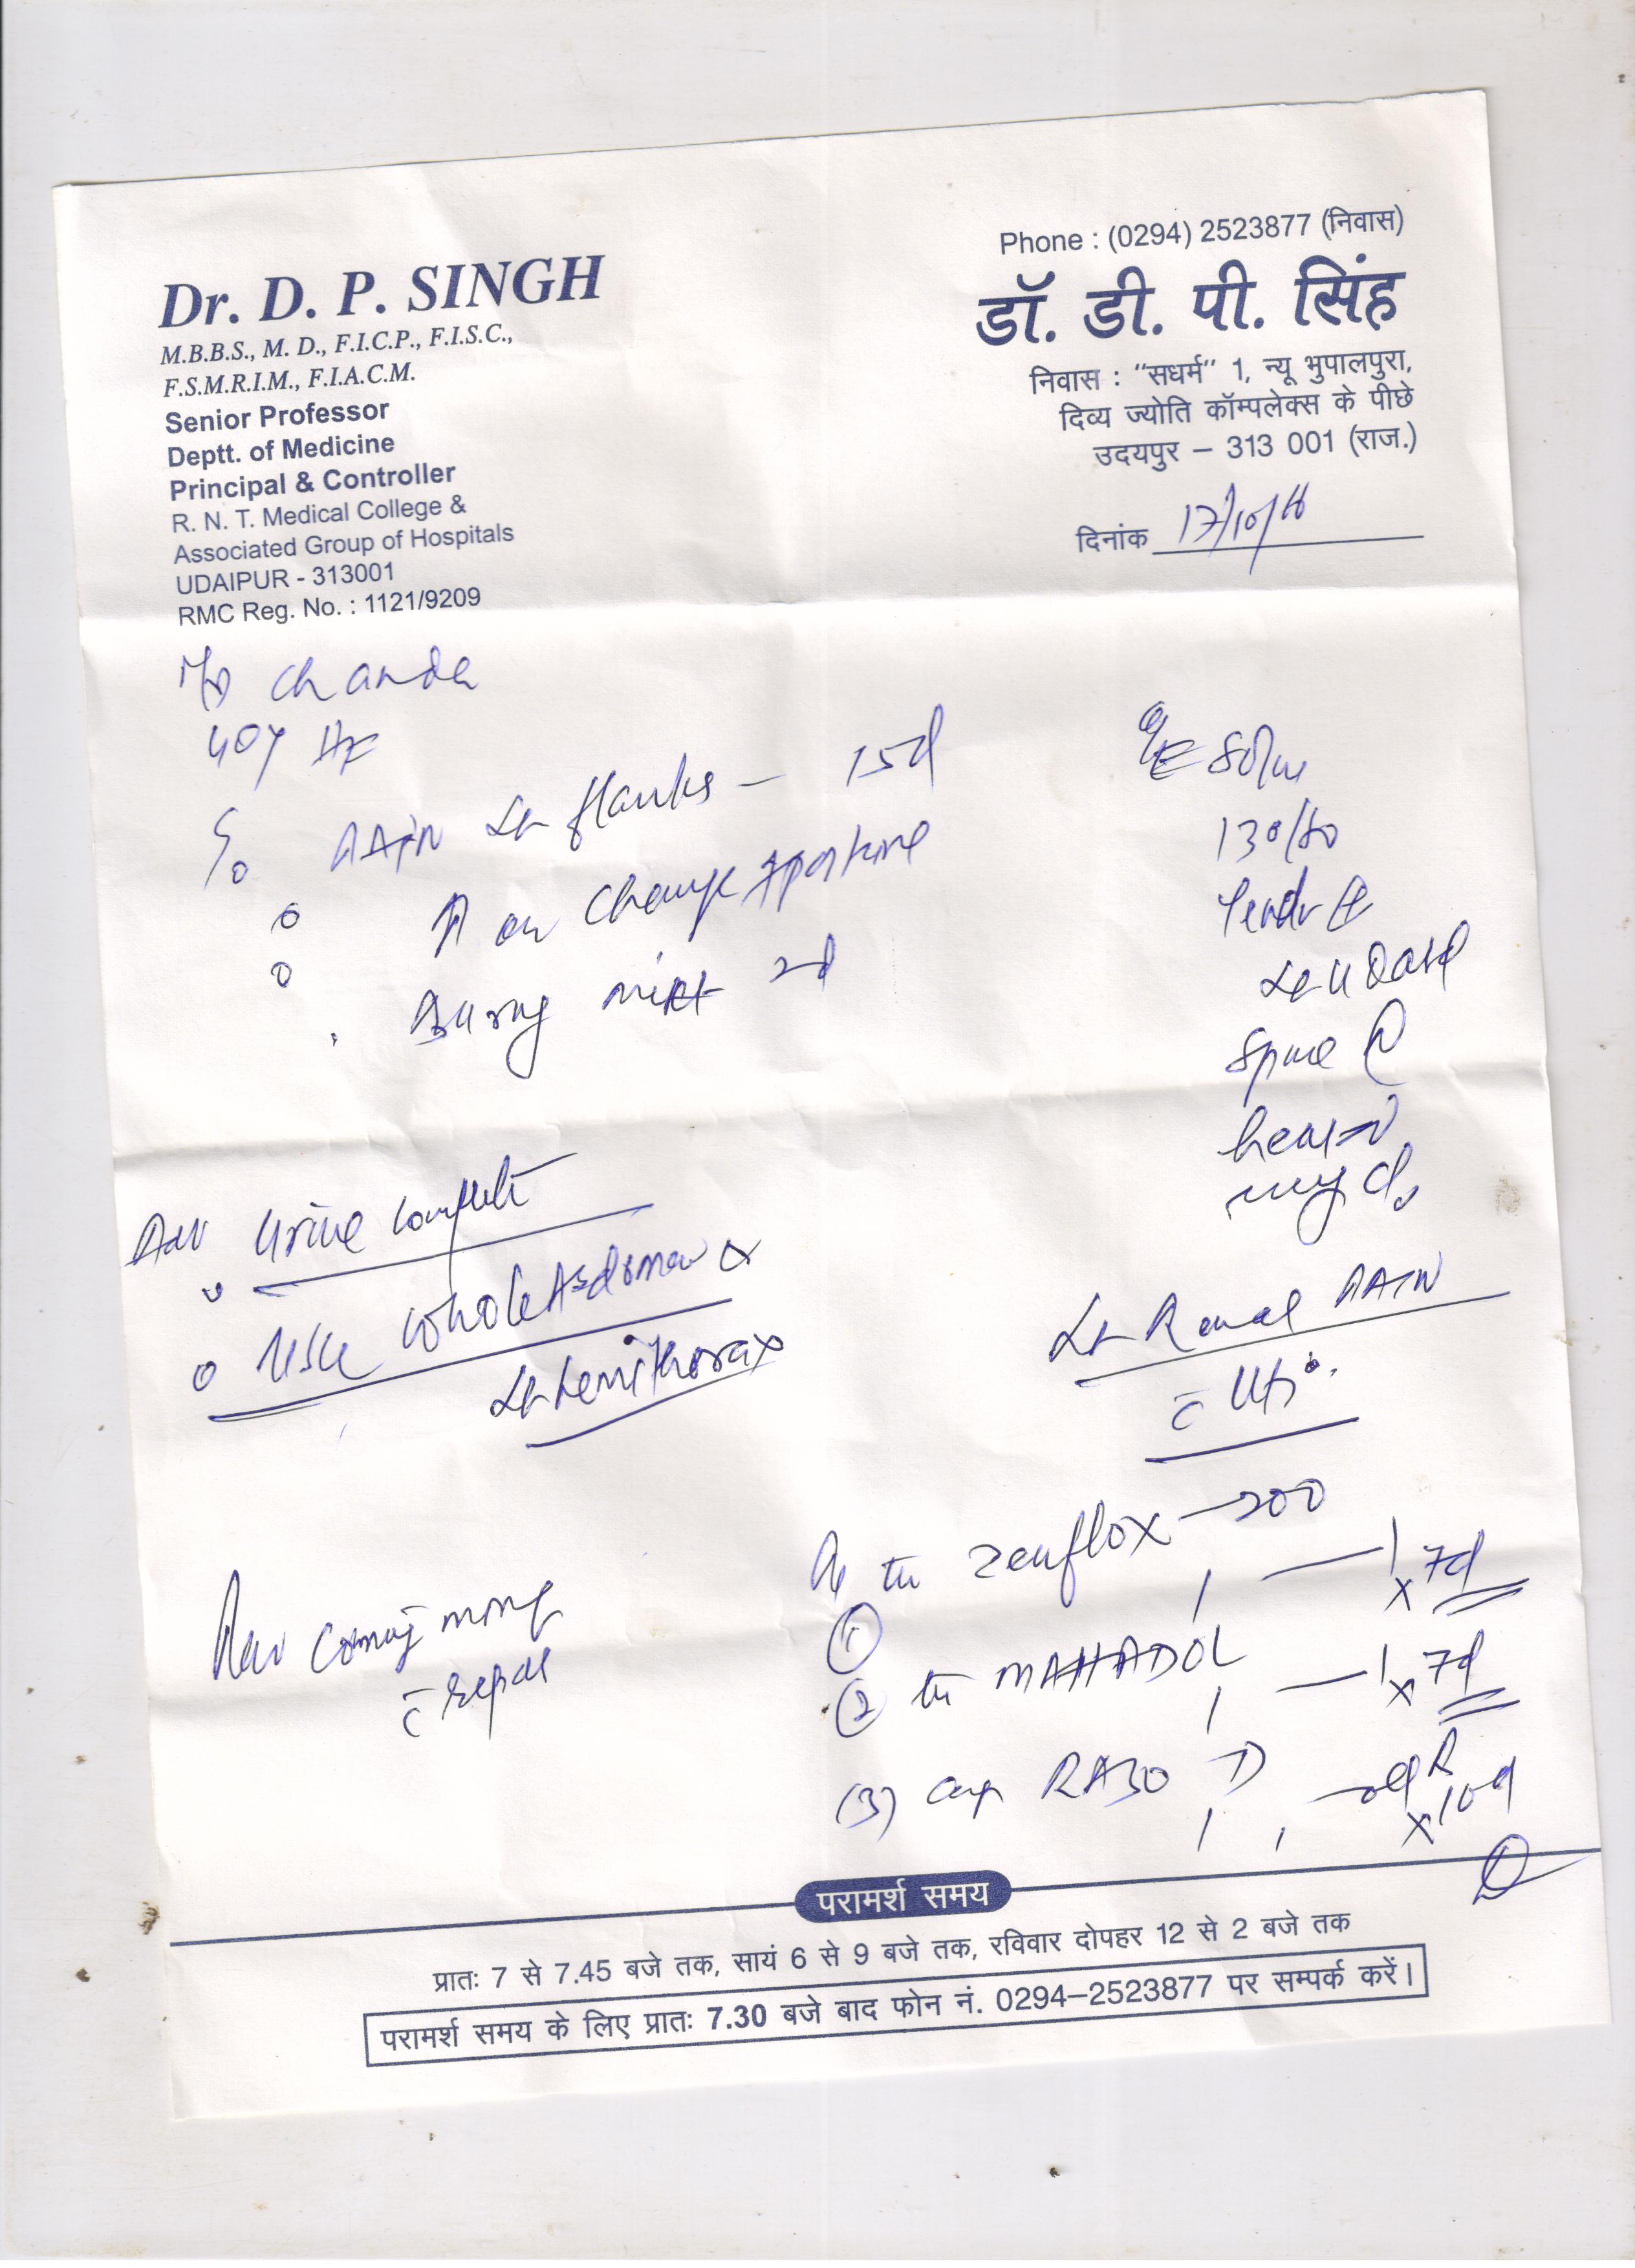 Phone : (0294) 2523877 (निवास)
Dr. D. P. SINGH
M.B.B.S., M. D., F.I.C.P., F.I.S.C.,
F.S.M.R.I.M., F.I.A.C.M.
Senior Professor
Deptt. of Medicine
Principal & Controller
R. N. T. Medical College &
Associated Group of Hospitals
UDAIPUR - 313001
RMC Reg. No. : 1121/9209
डॉ. डी. पी. सिंह
निवास : "सधर्म" 1, न्यू भुपालपुरा,
दिव्य ज्योति कॉम्पलेक्स के पीछे
उदयपुर – 313 001 (राज.)
दिनांक 17/10/16
Chanda
40y
PAIN Lt flanks – 15d
on change posture
Burning mict 2d
O/E 80/m
130/80
Tender
Lt
Spine
heart
Adv Urine complete
USG whole Abdomen &
Lt hemithorax
Lt Renal PAIN
c̄ UTI
Rev coming
c̄ report
Zenflox – 200
① 1 — 1 x 7d
② MAHADOL
1 — 1 x 7d
(3) cap RABO D
x 10d
परामर्श समय
प्रातः 7 से 7.45 बजे तक, सायं 6 से 9 बजे तक, रविवार दोपहर 12 से 2 बजे तक
परामर्श समय के लिए प्रातः 7.30 बजे बाद फोन नं. 0294–2523877 पर सम्पर्क करें।